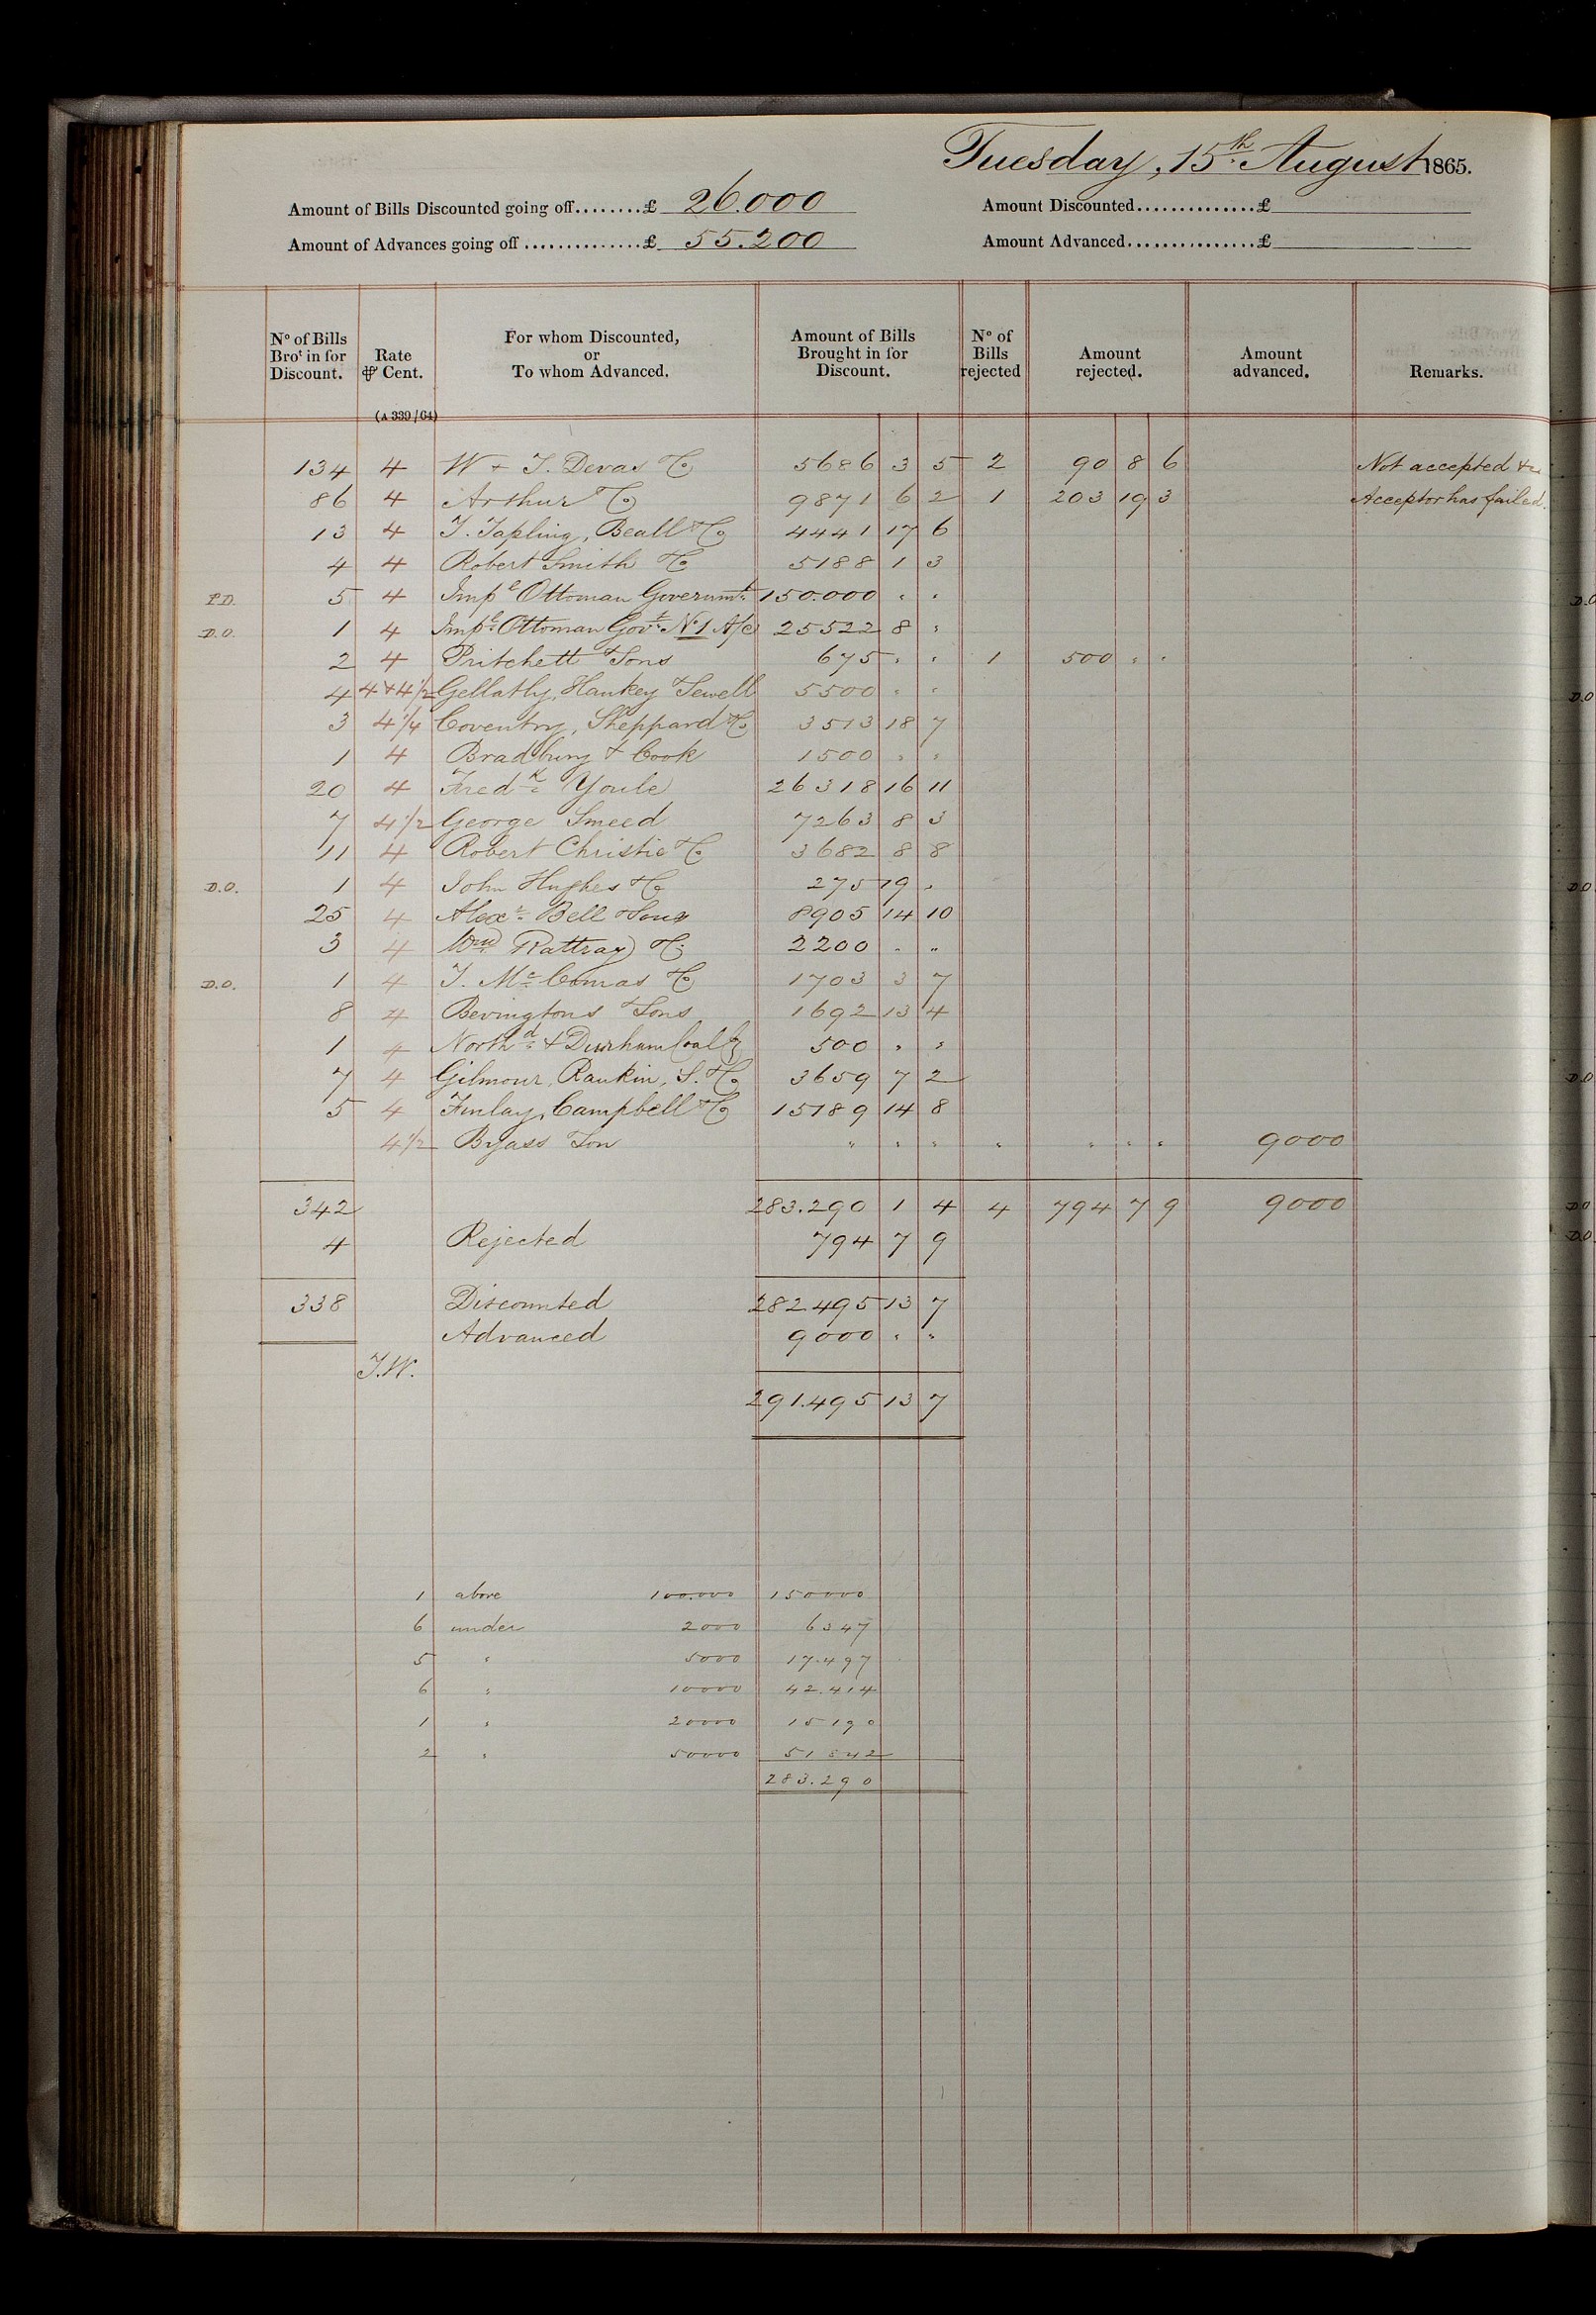 Tuesday, 15th August 1865.
Amount of Bills Discounted going off........£ 26.000 Amount Discounted..............£
Amount of Advances going off ..............£ 55.200 Amount Advanced...............£
No of Bills Brot in for Discount. Rate ⅌ Cent. (A 339/64) For whom Discounted, or To whom Advanced. Amount of Bills Brought in for Discount. No of Bills rejected Amount rejected. Amount advanced. Remarks.
134 4 W & T. Devas & Co 5686 3 5 2 90 8 6 Not accepted &c
86 4 Arthur & Co 9871 6 2 1 203 19 3 Acceptor has failed.
13 4 T. Tapling, Beall & Co 4441 17 6
4 4 Robert Smith & Co 5188 1 3
P.D. 5 4 Impl Ottoman Governmt 150.000 " "
D.O. 1 4 Impl Ottoman Govt No 1 A/c 25522 8 "
2 4 Pritchett & Sons 675 " " 1 500 " "
4 4 & 4 1/2 Gellatly, Hankey & Sewell 5500 " "
3 4 1/4 Coventry, Sheppard & Co 3513 18 7
1 4 Bradbury & Cook 1500 " "
20 4 Fredk Youle 26318 16 11
7 4 1/2 George Smeed 7263 8 3
11 4 Robert Christie & Co 3682 8 8
D.O. 1 4 John Hughes & Co 275 19 "
25 4 Alexr Bell & Sons 8905 14 10
3 4 Wm Rattray & Co 2200 " "
D.O. 1 4 J. McComas & Co 1703 3 7
8 4 Bevingtons & Sons 1692 13 4
1 4 Northd & Durham Coal Co 500 " "
7 4 Gilmour, Rankin, S. & Co 3659 7 2
5 4 Finlay, Campbell & Co 15189 14 8
4 1/2 Byass & Son " " " " " " " 9000
342 283.290 1 4 4 794 7 9 9000
4 Rejected 794 7 9
338 Discounted 282.495 13 7
Advanced 9000 " "
J.W.
291.495 13 7
1 above 100.000 150000
6 under 2000 6347
5 " 5000 17.497
6 " 10000 42.414
1 " 20000 15190
2 " 50000 51842
283.290